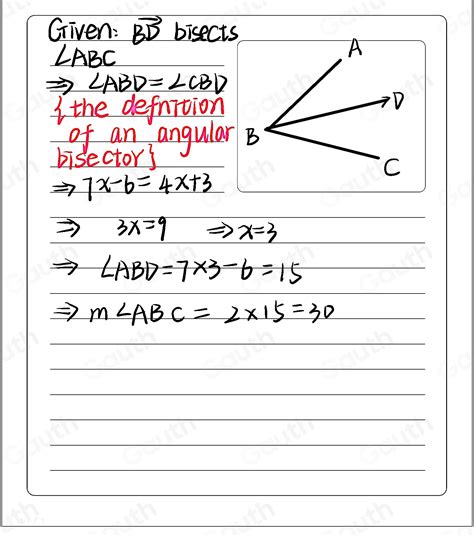 Given: BD bisects
∠ABC
⇒ ∠ABD=∠CBD
{the defnition
of an angular
bisector}
⇒ 7x-6=4x+3
⇒ 3x=9 ⇒ x=3
⇒ ∠ABD=7×3-6=15
⇒ m∠ABC = 2×15=30
A
D
B
C
Gauth